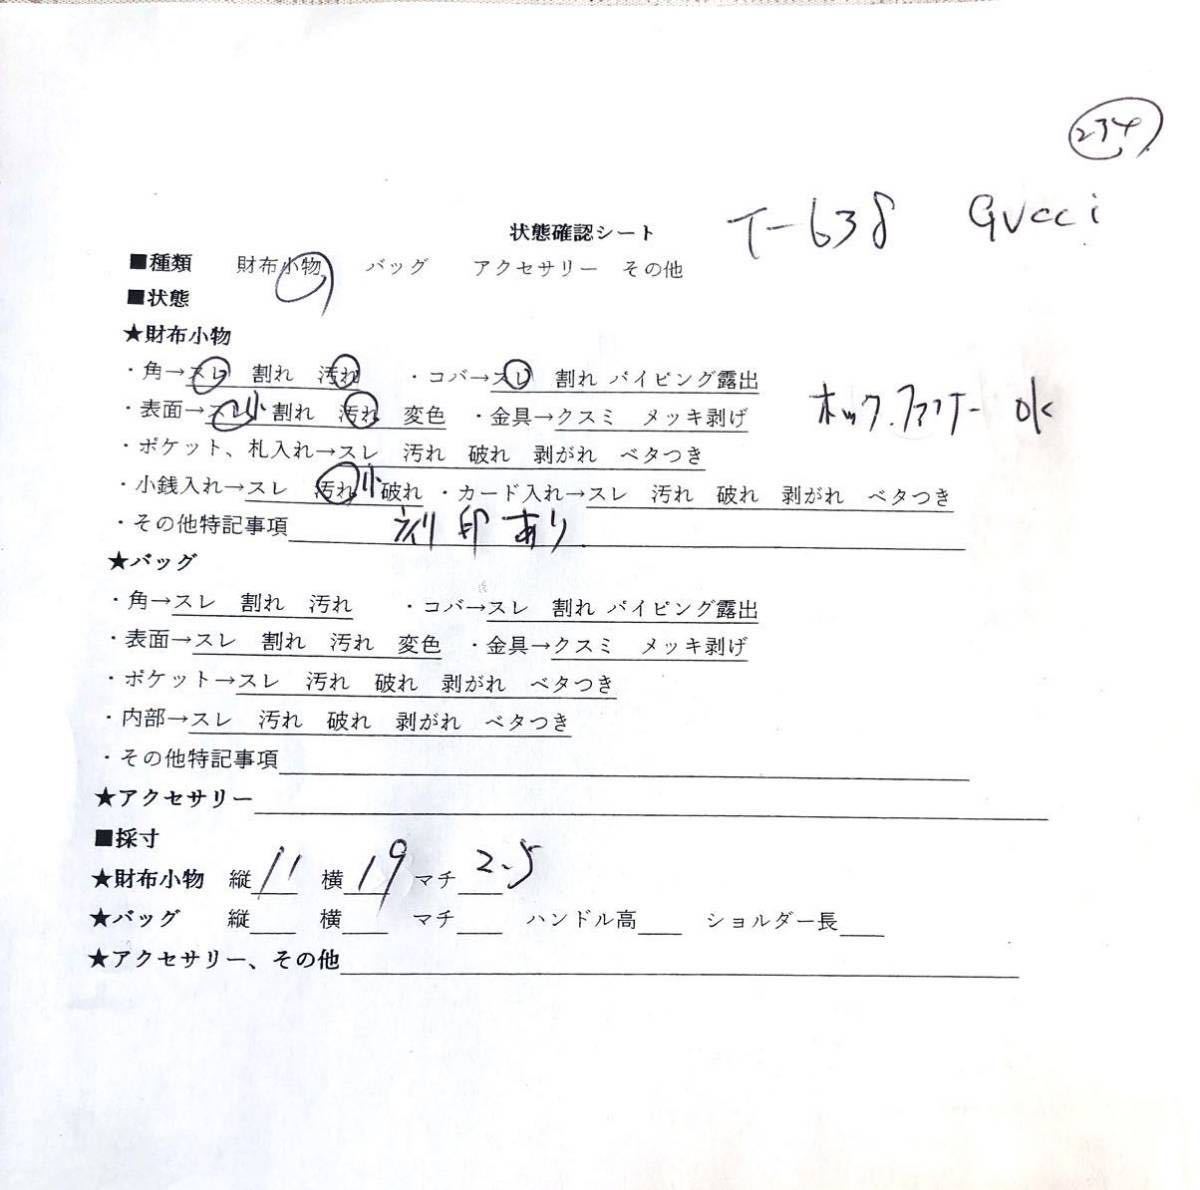 234
T-638 Gucci
状態確認シート
■種類 財布小物 バッグ アクセサリー その他
■状態
★財布小物
・角→スレ 割れ 汚れ ・コバ→スレ 割れ パイピング露出
・表面→スレ小 割れ 汚れ 変色 ・金具→クスミ メッキ剥げ ホック.ファスナー OK
・ポケット、札入れ→スレ 汚れ 破れ 剥がれ ベタつき
・小銭入れ→スレ 汚れ小 破れ ・カード入れ→スレ 汚れ 破れ 剥がれ ベタつき
・その他特記事項 刻印あり
★バッグ
・角→スレ 割れ 汚れ ・コバ→スレ 割れ パイピング露出
・表面→スレ 割れ 汚れ 変色 ・金具→クスミ メッキ剥げ
・ポケット→スレ 汚れ 破れ 剥がれ ベタつき
・内部→スレ 汚れ 破れ 剥がれ ベタつき
・その他特記事項
★アクセサリー
■採寸
★財布小物 縦 11 横 19 マチ 2.5
★バッグ 縦 横 マチ ハンドル高 ショルダー長
★アクセサリー、その他